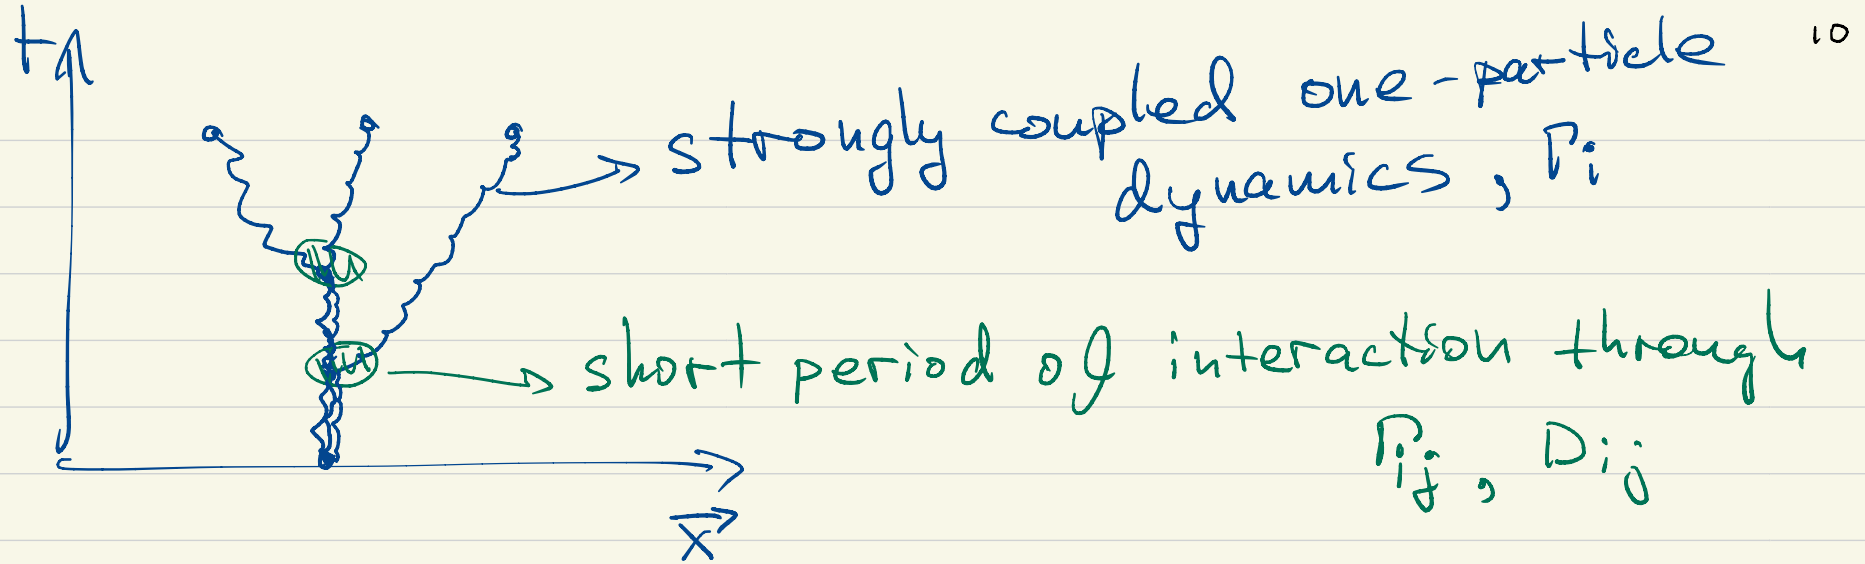 10
t
strongly coupled one-particle
dynamics, Γi
short period of interaction through
Γij, Dij
x⃗